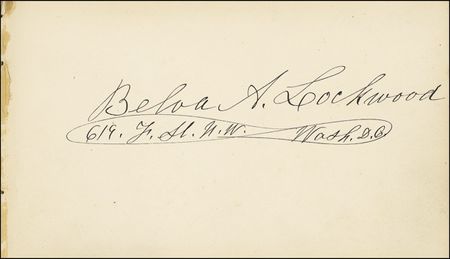 Belva A. Lockwood
619. F. St. N.W. Wash. D.C.